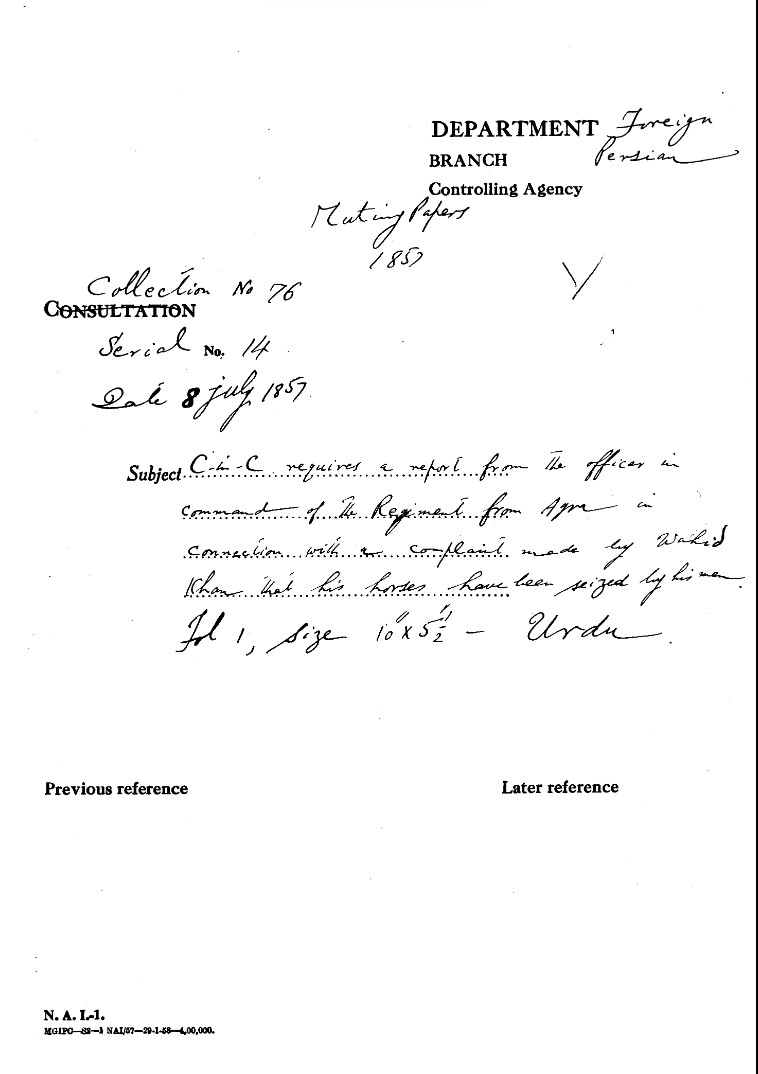 DEPARTMENT Foreign
BRANCH Persian
Controlling Agency
Mutiny Papers
1857
Collection No 76
CONSULTATION
Serial No. 14
Date 8 July 1857.
Subject C-in-C requires a report from the officer in
command of the Regiment from Agra in
connection with a complaint made by Wahid
Khan that his horses have been seized by his men.
Fol 1, size 10" x 5½" - Urdu.
Previous reference
Later reference
N. A. I.-1.
MGIPC—S2—1 NAI/57—29-1-58—4,00,000.